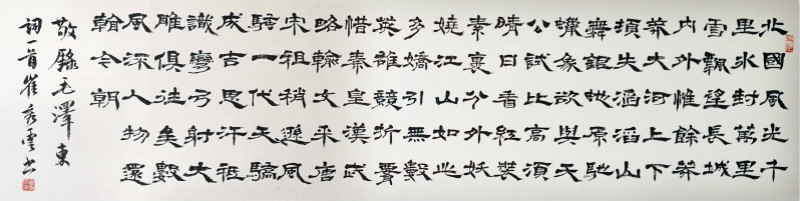 北國風光千
里冰封萬里
雪飄望長城
內外惟餘莽
莽大河上下
頓失滔滔山
舞銀蛇原馳
蠟象欲與天
公試比高須
晴日看紅裝
素裹分外妖
嬈江山如此
多嬌引無數
英雄競折腰
惜秦皇漢武
略輸文采唐
宋祖稍遜風
騷一代天驕
成吉思汗祗
識彎弓射大
雕俱往矣數
風流人物還
看今朝
敬錄毛澤東
词一首崔雲书